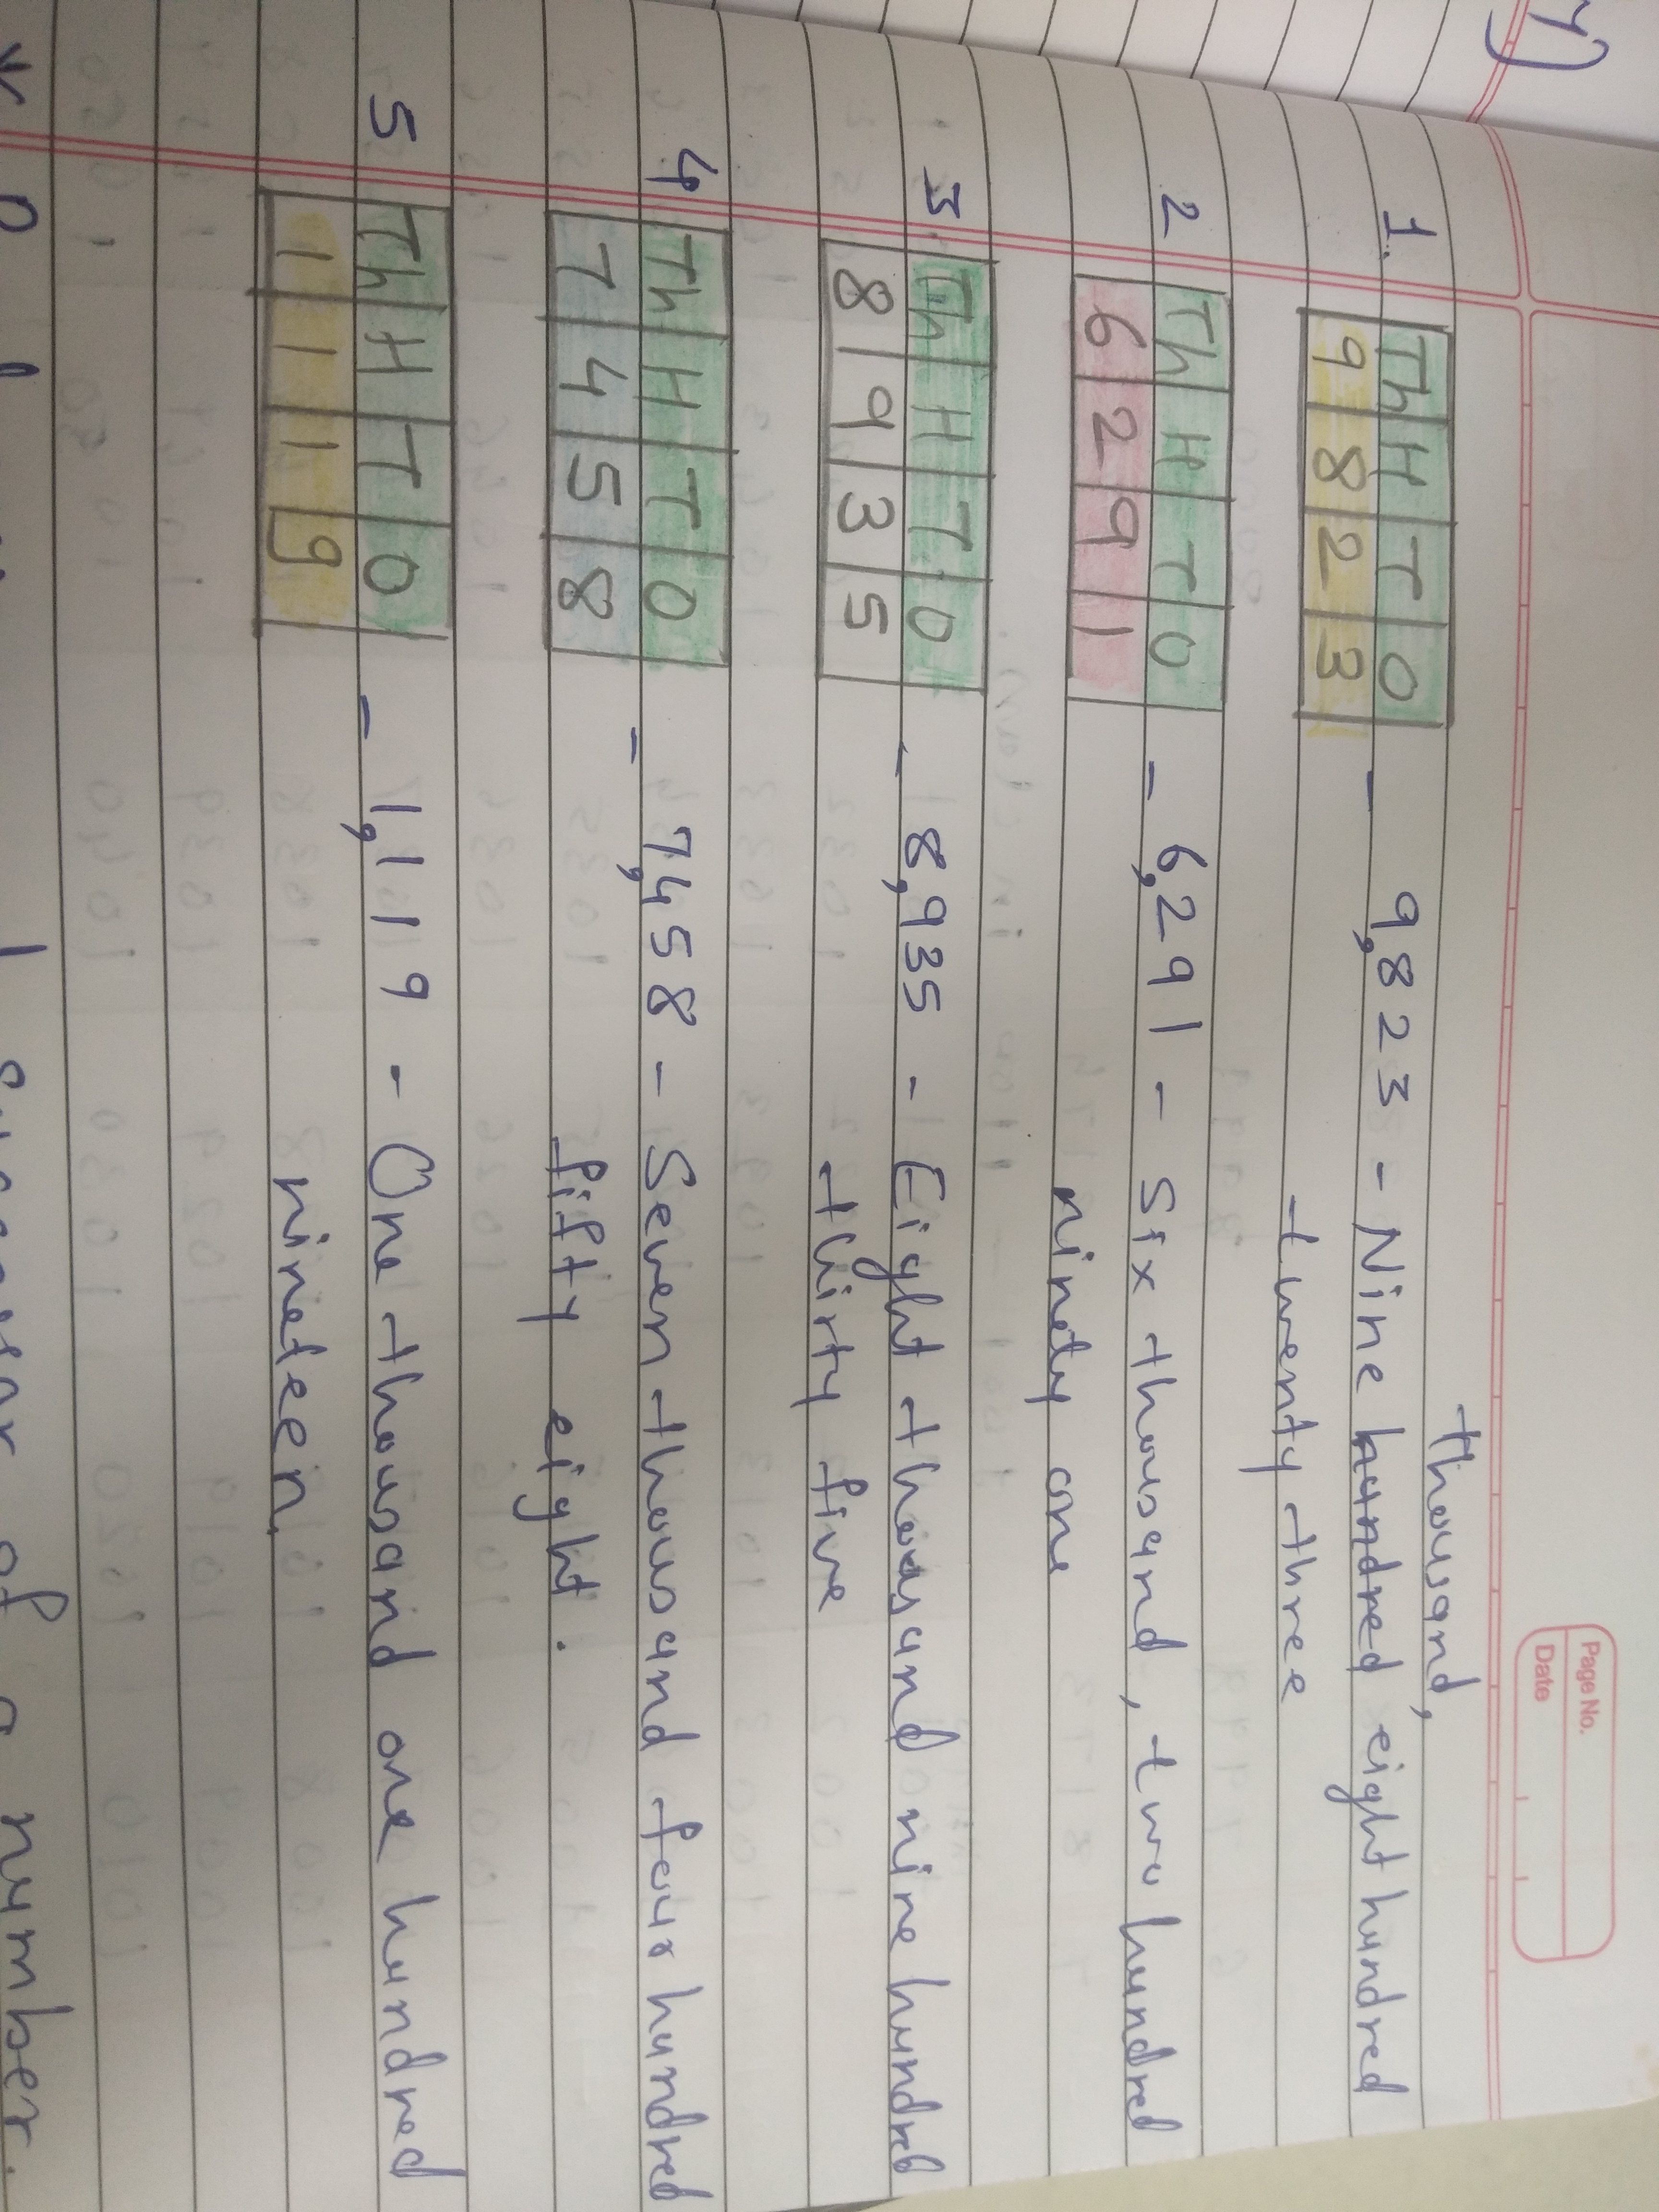 Page No.
Date
thousand,
1. Th H T O - 9,823 - Nine hundred eight hundred
9 8 2 3 twenty three
2 Th H T O - 6,291 - Six thousand, two hundred
6 2 9 1 ninety one
3 Th H T O - 8,935 - Eight thousand nine hundred
8 9 3 5 thirty five
4 Th H T O - 7,458 - Seven thousand four hundred
7 4 5 8 fifty eight.
5 Th H T O - 1,119 - One thousand one hundred
1 1 1 9 nineteen.
of a number.